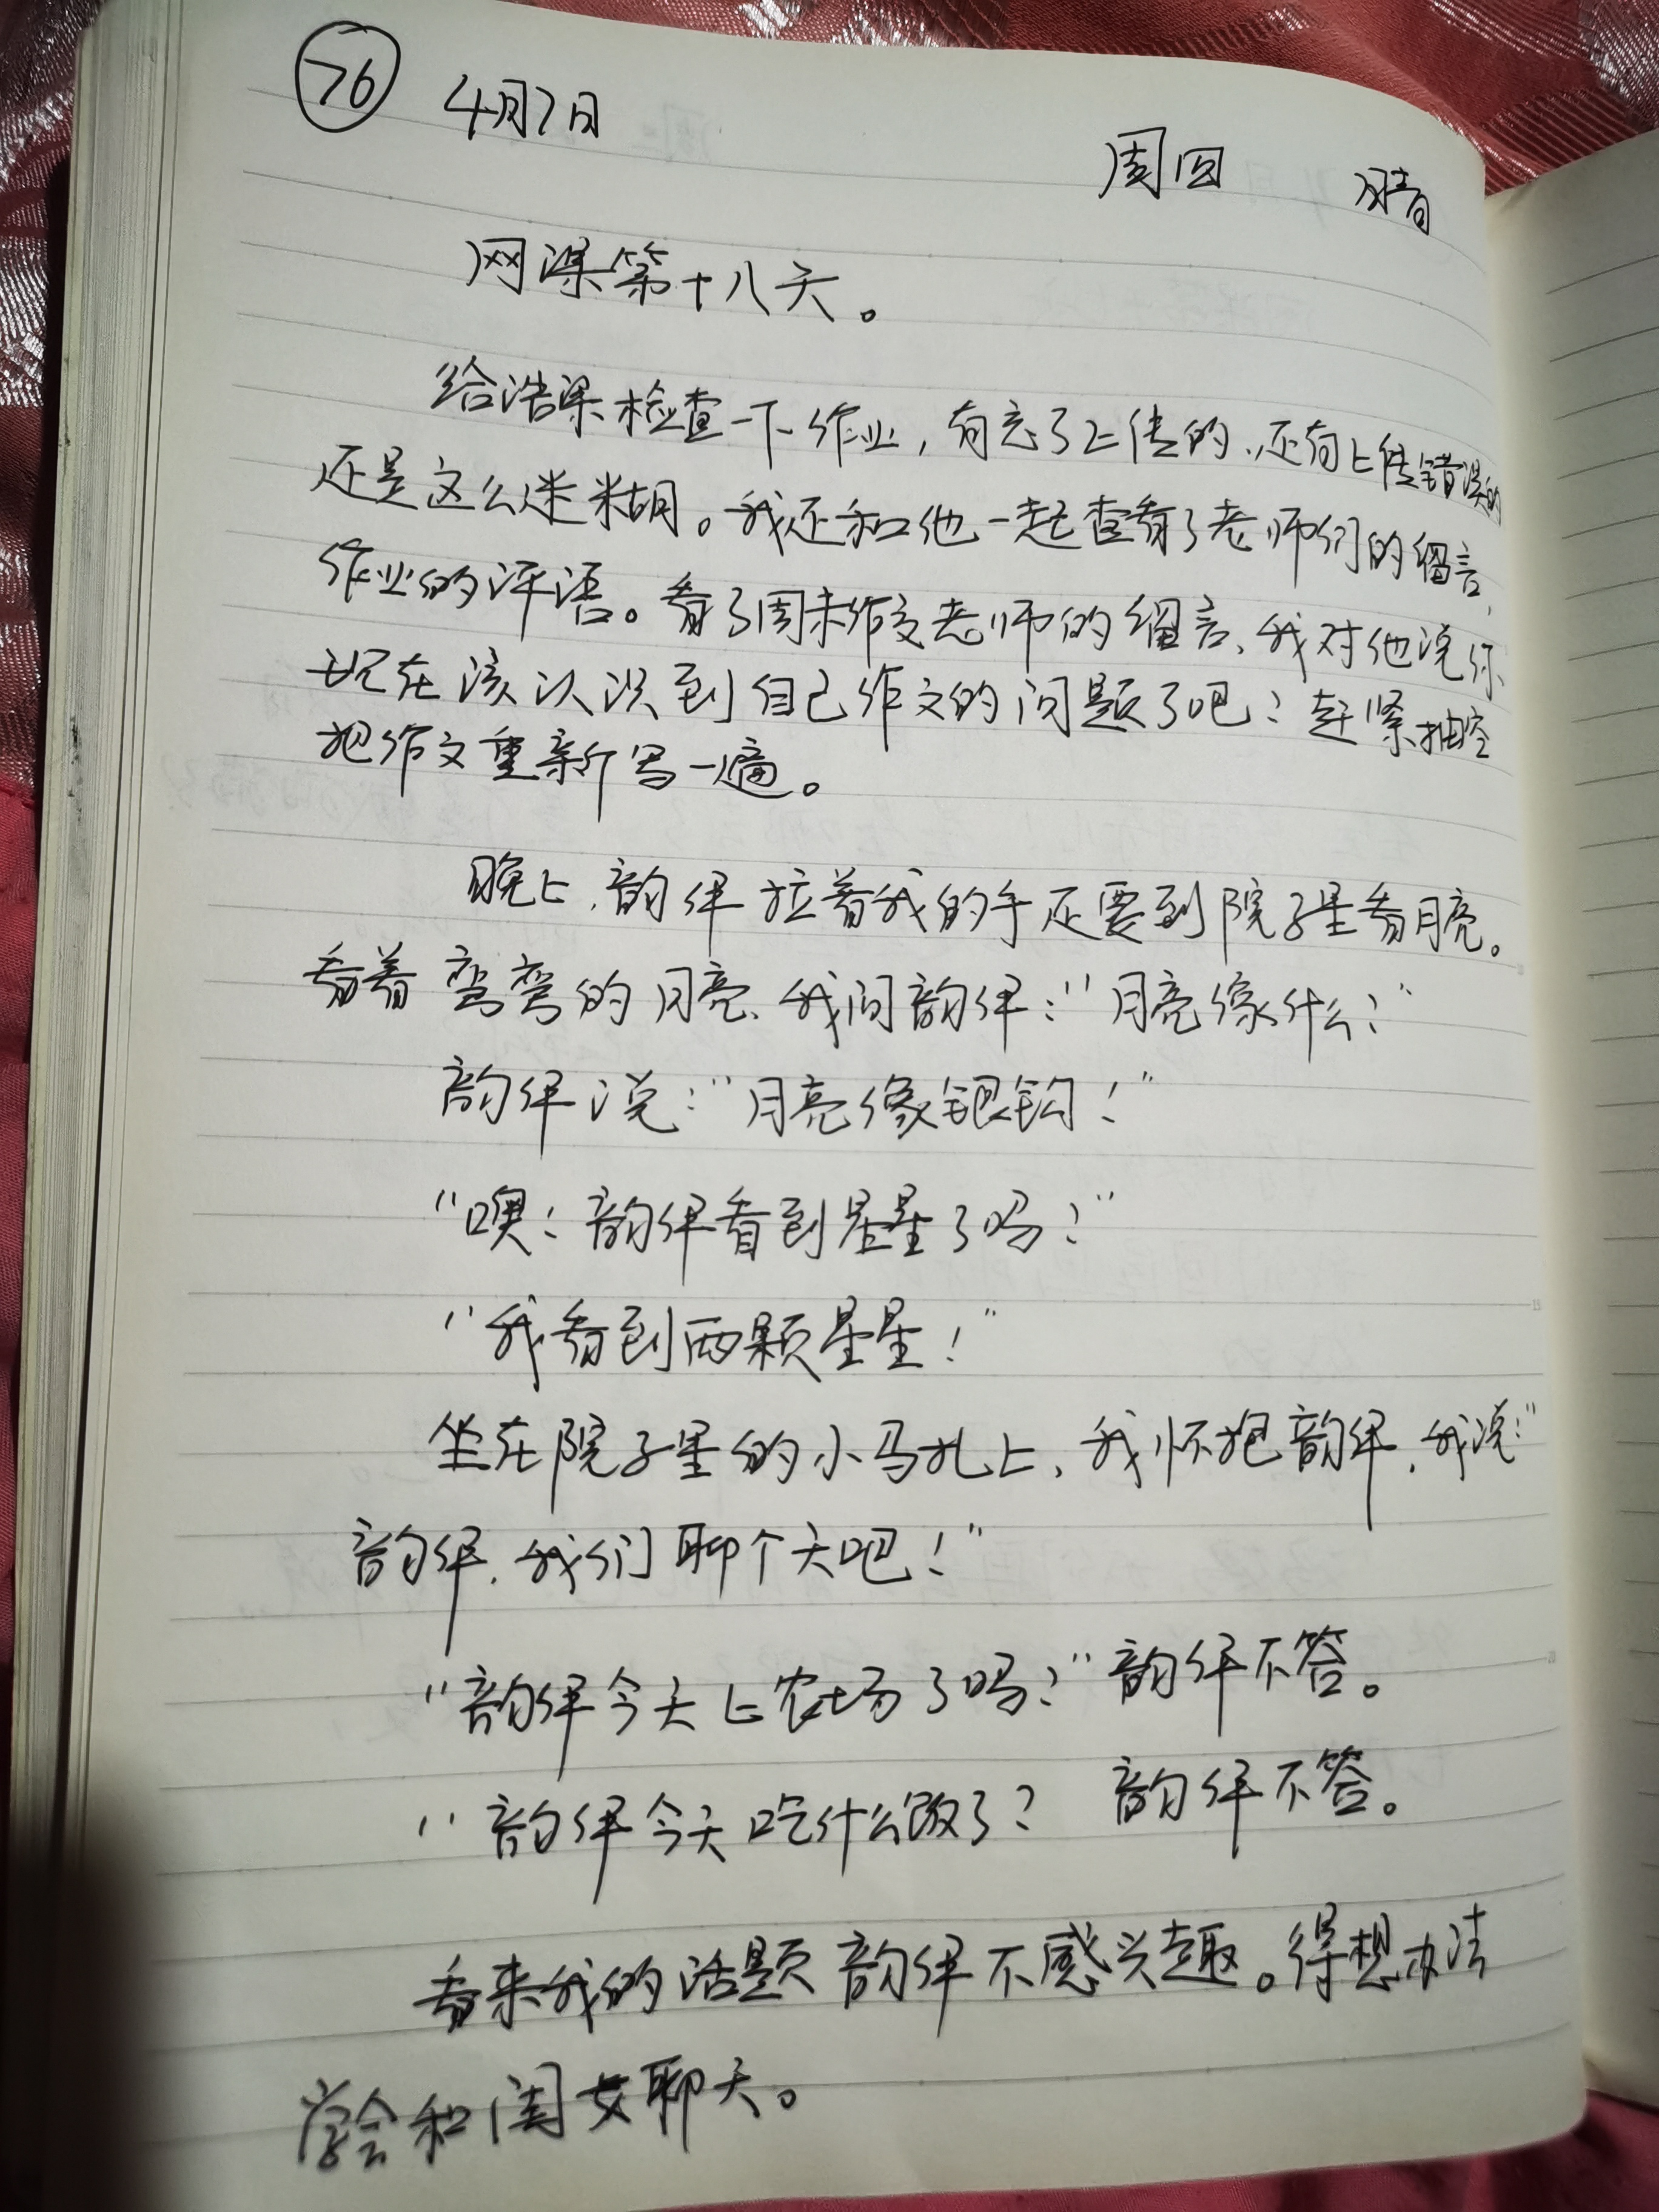 76 4月7日 周四 晴
网课第十八天。
给浩梁检查一下作业，有忘了上传的、还有上传错误的
还是这么迷糊。我还和他一起查看了老师们的留言，
作业的评语。看了周末作文老师的留言、我对他说你
现在该认识到自己作文的问题了吧？赶紧抽空
把作文重新写一遍。
晚上，韵伊拉着我的手还要到院子里看月亮。
看着弯弯的月亮、我问韵伊：“月亮像什么？”
韵伊说：“月亮像银钩！”
“噢！韵伊看到星星了吗？”
“我看到两颗星星！”
坐在院子里的小马扎上，我怀抱韵伊，我说：“
韵伊，我们聊个天吧！”
“韵伊今天上农场了吗？”韵伊不答。
“韵伊今天吃什么饭了？ 韵伊不答。
看来我的话题韵伊不感兴趣。得想办法
学会和闺女聊天。